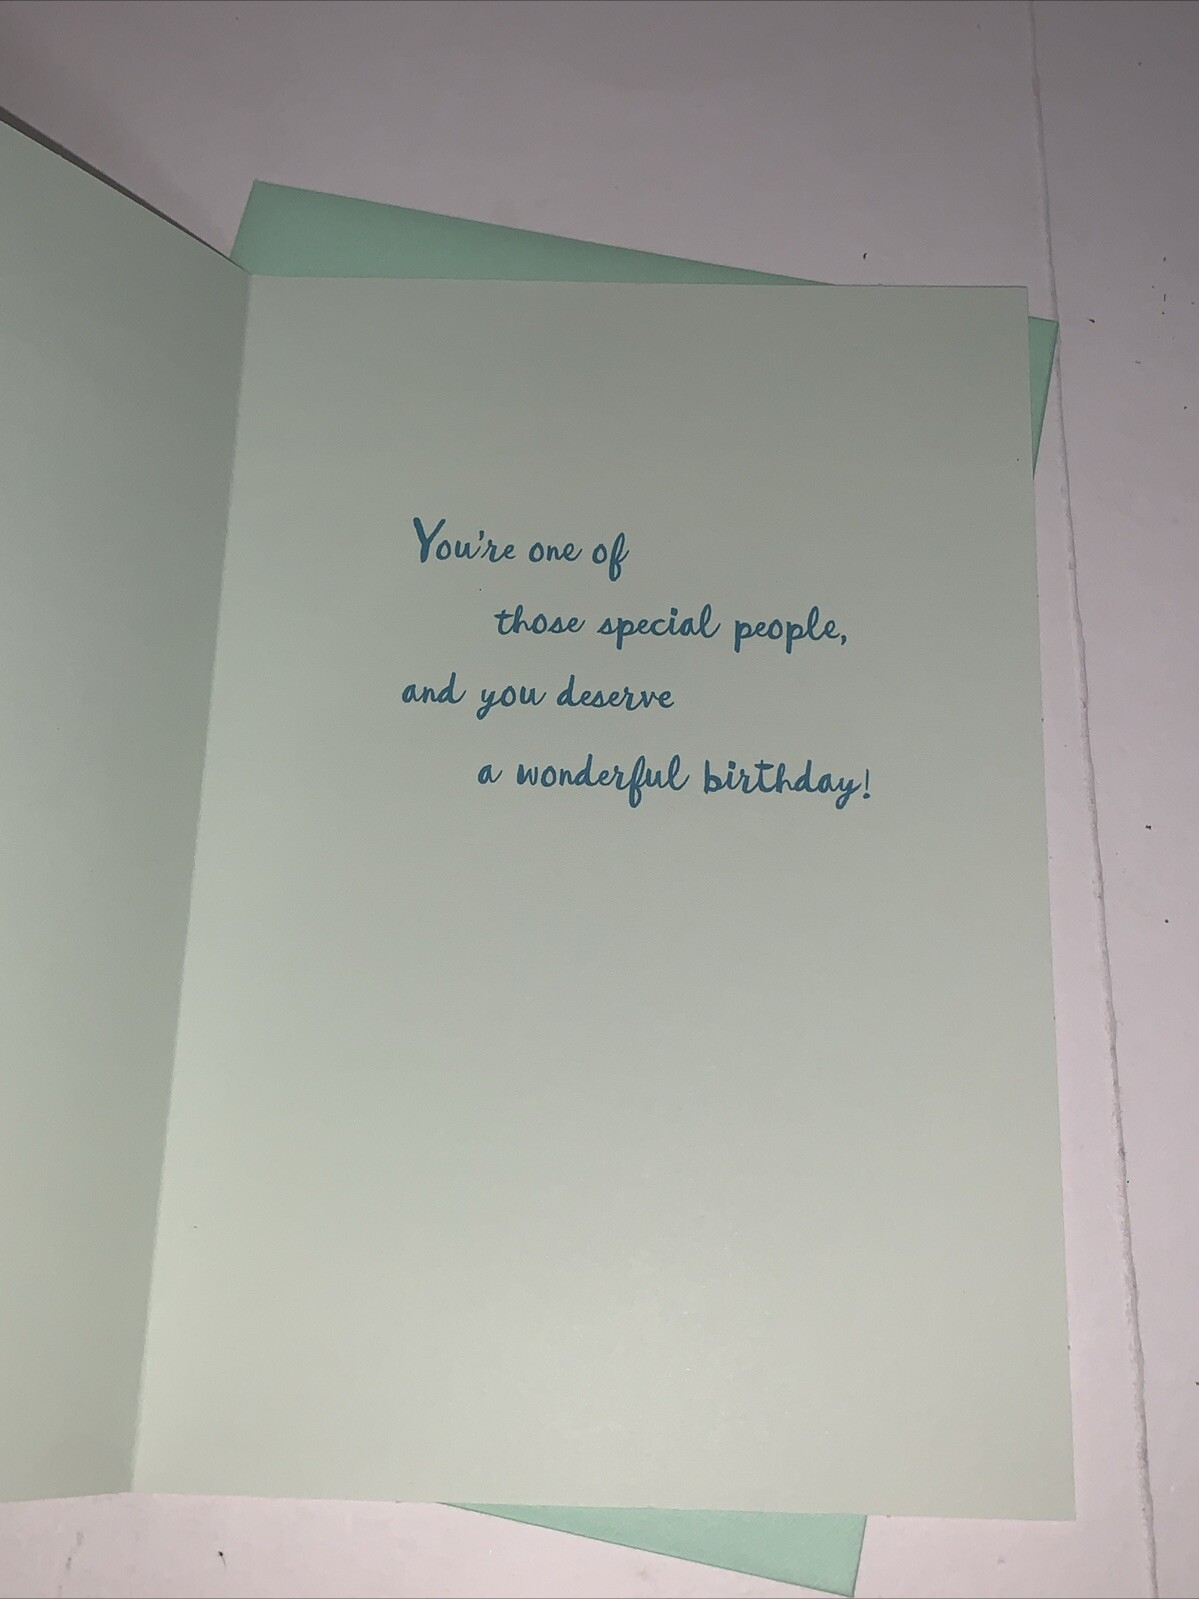 You're one of
those special people,
and you deserve
a wonderful birthday!